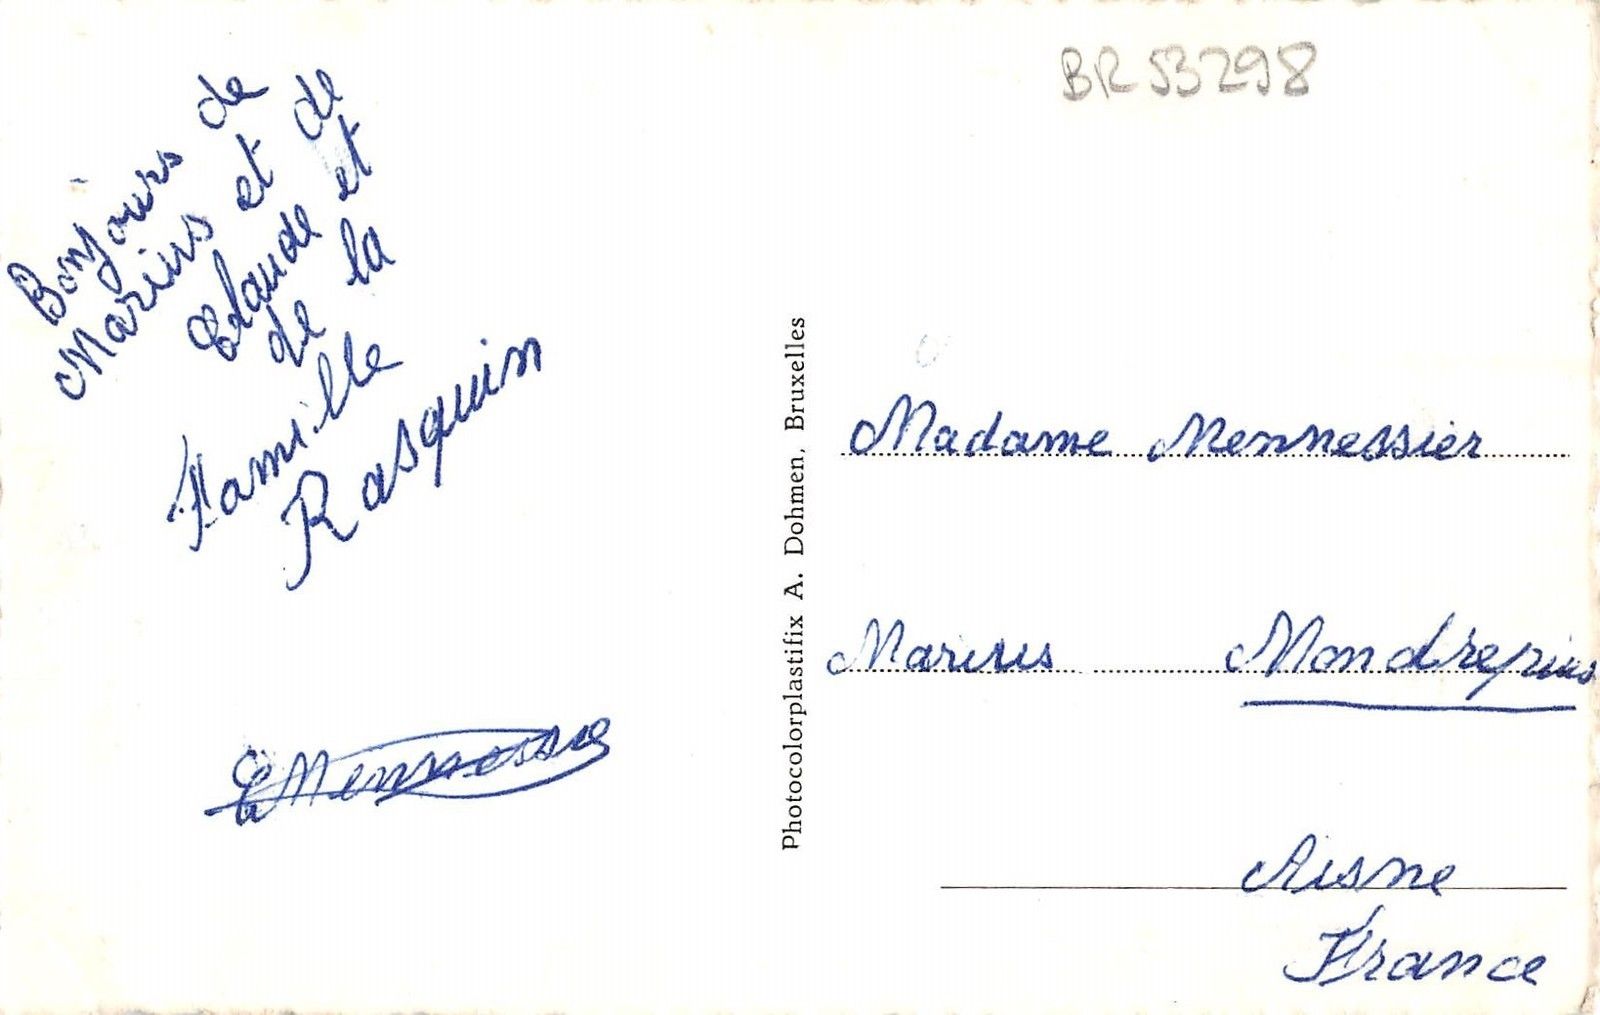 BR 53298
Bonjours de
Marius et de
Claude et
de la
Famille
Rasquin
Mennessie
Photocolorplastifix A. Dohmen, Bruxelles
Madame Mennessier
Marius Mondrepius
Aisne
France